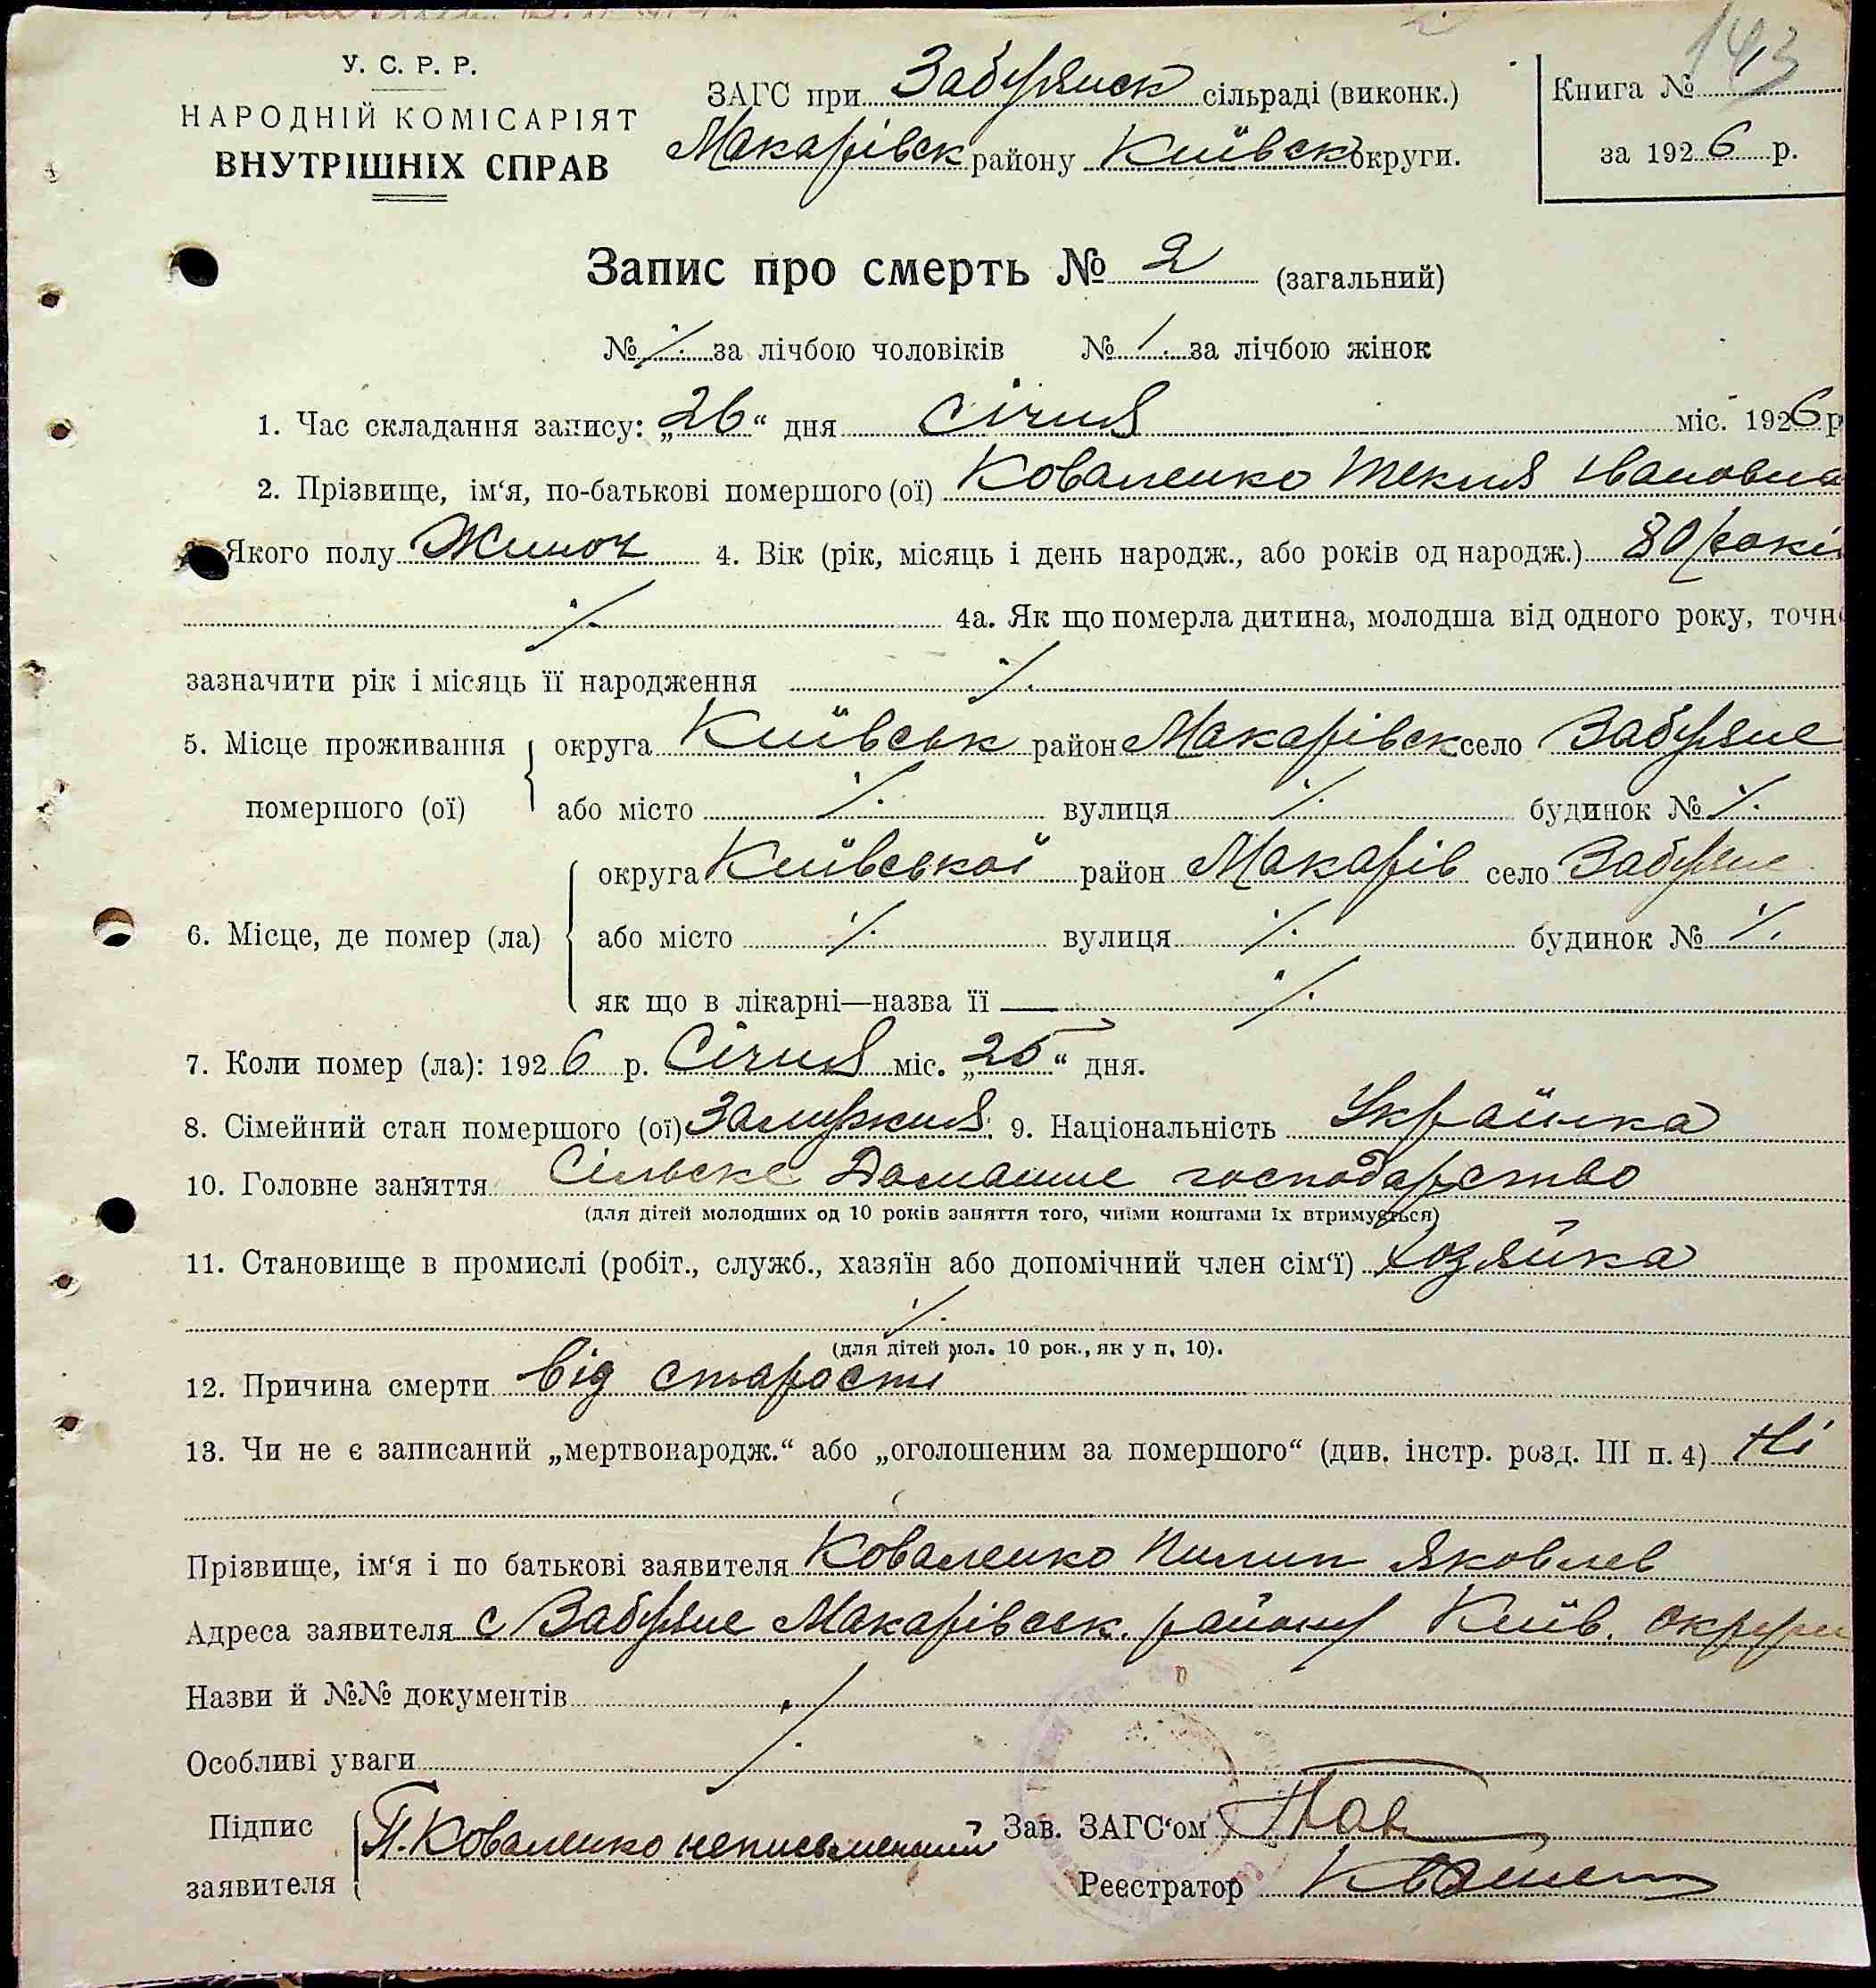 143
У. С. Р. Р.
НАРОДНІЙ КОМІСАРІЯТ
ВНУТРІШНІХ СПРАВ
ЗАГС при Забуянск сільраді (виконк.)
Макарівск району Київск округи.
Книга №
за 1926 р.
Запис про смерть № 2 (загальний)
№ ·/. за лічбою чоловіків № 1. за лічбою жінок
1. Час складання запису: „26“ дня Січня міс. 1926 р
2. Прізвище, ім‘я, по-батькові помершого (ої) Коваленко Текля Івановна
Якого полу Жиноч 4. Вік (рік, місяць і день народж., або років од народж.) 80 років
·/. 4а. Як що померла дитина, молодша від одного року, точно
зазначити рік і місяць її народження ·/.
5. Місце проживання помершого (ої) округа Київськ район Макарівск село Забуяне
або місто ·/. вулиця ·/. будинок № ·/.
6. Місце, де помер (ла) округа Київської район Макарів село Забуяне
або місто ·/. вулиця ·/. будинок № ·/.
як що в лікарні—назва її ·/.
7. Коли помер (ла): 1926 р. Січня міс. „25“ дня.
8. Сімейний стан помершого (ої) Замужня. 9. Національність Українка
10. Головне заняття Сільске Домашне господарство
(для дітей молодших од 10 років заняття того, чиїми коштами їх втримується)
11. Становище в промислі (робіт., служб., хазяїн або допомічний член сім‘ї) Хозяйка
·/.
(для дітей мол. 10 рок., як у п. 10).
12. Причина смерти від старости
13. Чи не є записаний „мертвонародж.“ або „оголошеним за помершого“ (див. інстр. розд. III п. 4) Ні
Прізвище, ім‘я і по батькові заявителя Коваленко Пилип Яковлев
Адреса заявителя с Забуяне Макарівськ. району Київ. округи
Назви й №№ документів ·/.
Особливі уваги
Підпис заявителя П. Коваленко неписьменний
Зав. ЗАГС‘ом
Реєстратор